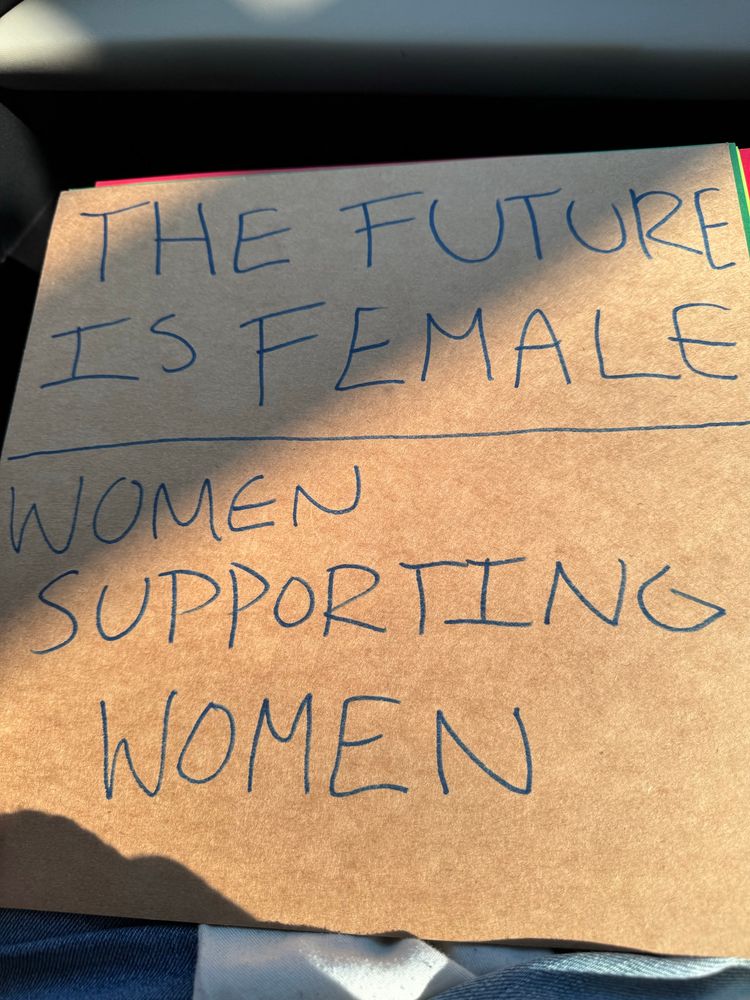 THE FUTURE
IS FEMALE
WOMEN
SUPPORTING
WOMEN